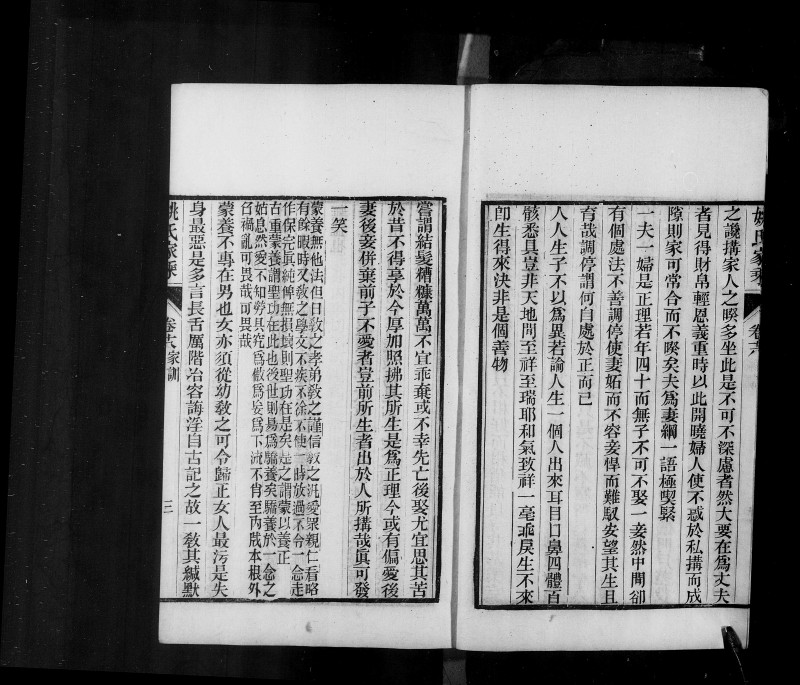 之讒搆家人之暌多坐此是不可不深慮者然大要在爲丈夫
者見得財帛輕恩義重時以此開曉婦人使不惑於私搆而成
隙則家可常合而不暌矣夫爲妻綱一語極喫緊
一夫一婦是正理若年四十而無子不可不娶一妾然中間卻
有個處法不善調停使妻妬而不容妾悍而難馭安望其生且
育哉調停謂何自處於正而已
人人生子不以爲異若論人生一個人出來耳目口鼻四體百
骸悉具豈非天地間至祥至瑞耶和氣致祥一毫乖戾生不來
卽生得來決非是個善物
嘗謂結髮糟糠萬萬不宜乖棄或不幸先亡後娶尤宜思其苦
於昔不得享於今厚加照拂其所生是爲正理今或有偏愛後
妻後妾併棄前子不愛者豈前所生者出於人所搆哉眞可發
一笑
蒙養無他法但日敎之孝弟敎之謹信敎之汎愛眾親仁看略
有餘暇時又敎之學文不疾不徐不使一時放過不令一念走
作保完眞純俾無損壞則聖功在是矣是之謂蒙以養正
古重蒙養謂聖功在此也後世則易爲驕養矣驕養於一念之
姑息然愛不知勞其究爲傲爲妄爲下流不肖至內戕本根外
召禍亂可畏哉可畏哉
蒙養不專在男也女亦須從幼敎之可令歸正女人最污是失
身最惡是多言長舌厲階冶容誨淫自古記之故一敎其緘默
姚氏家乘
卷十六家訓
三
姚氏家乘